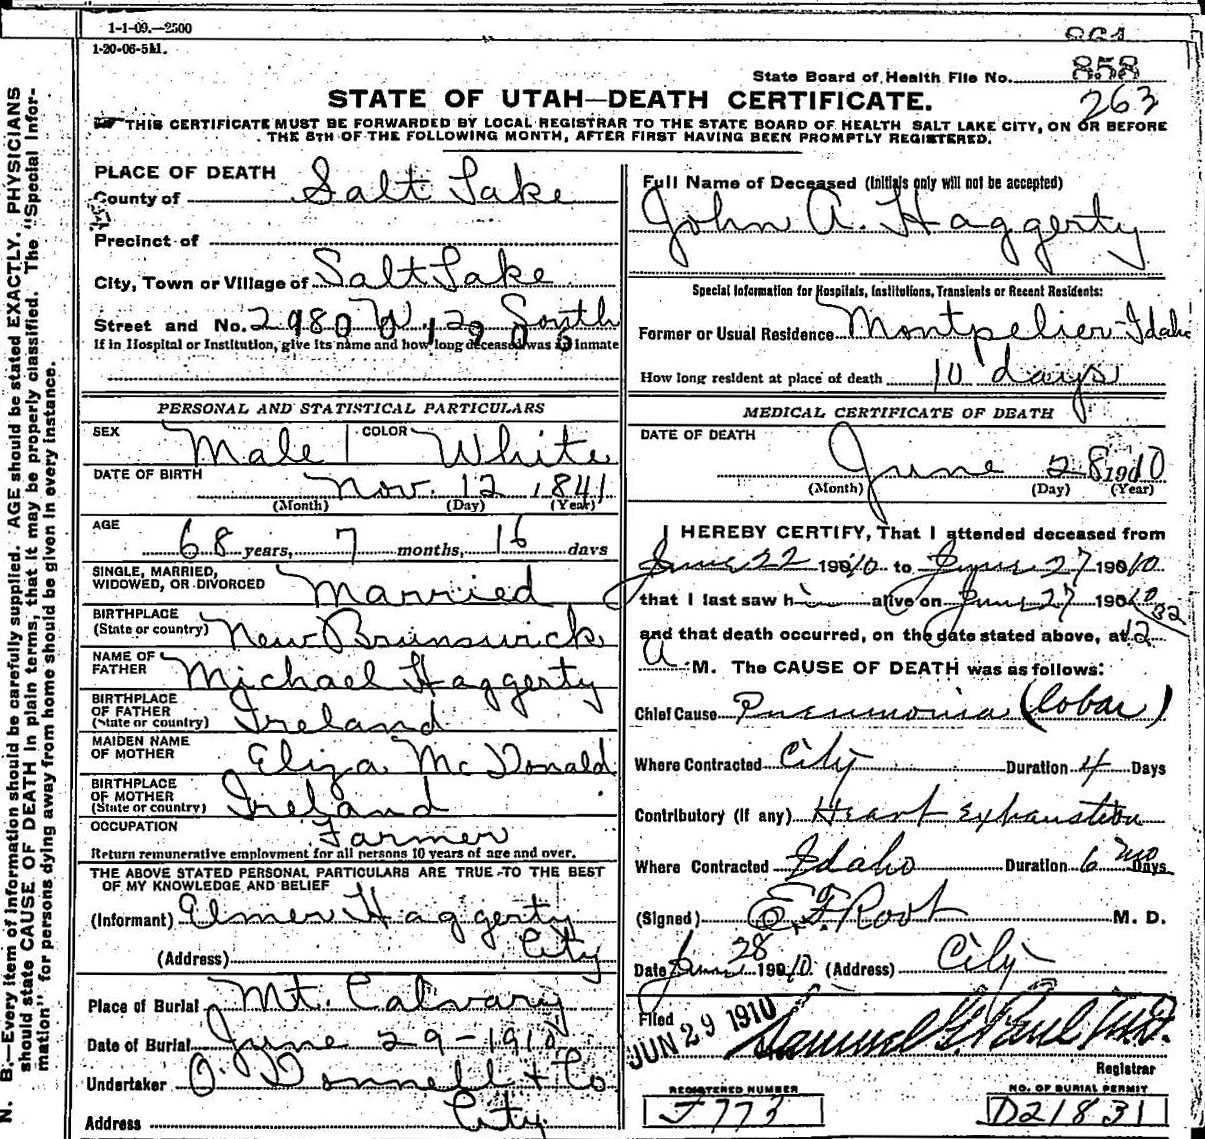 1-1-09.—2500
1-20-06-5M.
State Board of Health File No. 858
263
STATE OF UTAH—DEATH CERTIFICATE.
THIS CERTIFICATE MUST BE FORWARDED BY LOCAL REGISTRAR TO THE STATE BOARD OF HEALTH SALT LAKE CITY, ON OR BEFORE
THE 5TH OF THE FOLLOWING MONTH, AFTER FIRST HAVING BEEN PROMPTLY REGISTERED.
N. B.—Every item of information should be carefully supplied. AGE should be stated EXACTLY. PHYSICIANS
should state CAUSE OF DEATH in plain terms, that it may be properly classified. The "Special Infor-
mation" for persons dying away from home should be given in every instance.
PLACE OF DEATH
County of Salt Lake
Precinct of
City, Town or Village of Salt Lake
Street and No. 2980 W, 1200 South
If in Hospital or Institution, give its name and how long deceased was inmate
PERSONAL AND STATISTICAL PARTICULARS
SEX Male COLOR White
DATE OF BIRTH Nov. 12, 1841
(Month) (Day) (Year)
AGE
68 years, 7 months, 16 days
SINGLE, MARRIED,
WIDOWED, OR DIVORCED Married
BIRTHPLACE
(State or country) New Brunswick
NAME OF
FATHER Michael Haggerty
BIRTHPLACE
OF FATHER
(State or country) Ireland
MAIDEN NAME
OF MOTHER Eliza McDonald
BIRTHPLACE
OF MOTHER
(State or country) Ireland
OCCUPATION Farmer
Return remunerative employment for all persons 10 years of age and over.
THE ABOVE STATED PERSONAL PARTICULARS ARE TRUE TO THE BEST
OF MY KNOWLEDGE AND BELIEF
(Informant) Elmer Haggerty
(Address) City
Place of Burial Mt. Calvary
Date of Burial June 29-1910
Undertaker O'Donnell & Co
Address City
Full Name of Deceased (Initials only will not be accepted)
John A. Haggerty
Special Information for Hospitals, Institutions, Transients or Recent Residents:
Former or Usual Residence Montpelier-Idaho
How long resident at place of death 10 days
MEDICAL CERTIFICATE OF DEATH
DATE OF DEATH
June 28 1910
(Month) (Day) (Year)
I HEREBY CERTIFY, That I attended deceased from
June 22 1910 to June 27 1910
that I last saw him alive on June 27 1910
and that death occurred, on the date stated above, at 12 32
A M. The CAUSE OF DEATH was as follows:
Chief Cause Pneumonia (lobar)
Where Contracted City Duration 4 Days
Contributory (if any) Heart exhaustion
Where Contracted Idaho Duration 6 mo Days
(Signed) E. F. Root M. D.
Date June 28 1910. (Address) City
Filed
JUN 29 1910 Samuel G. Paul M.D.
Registrar
REGISTERED NUMBER NO. OF BURIAL PERMIT
J773 D21831